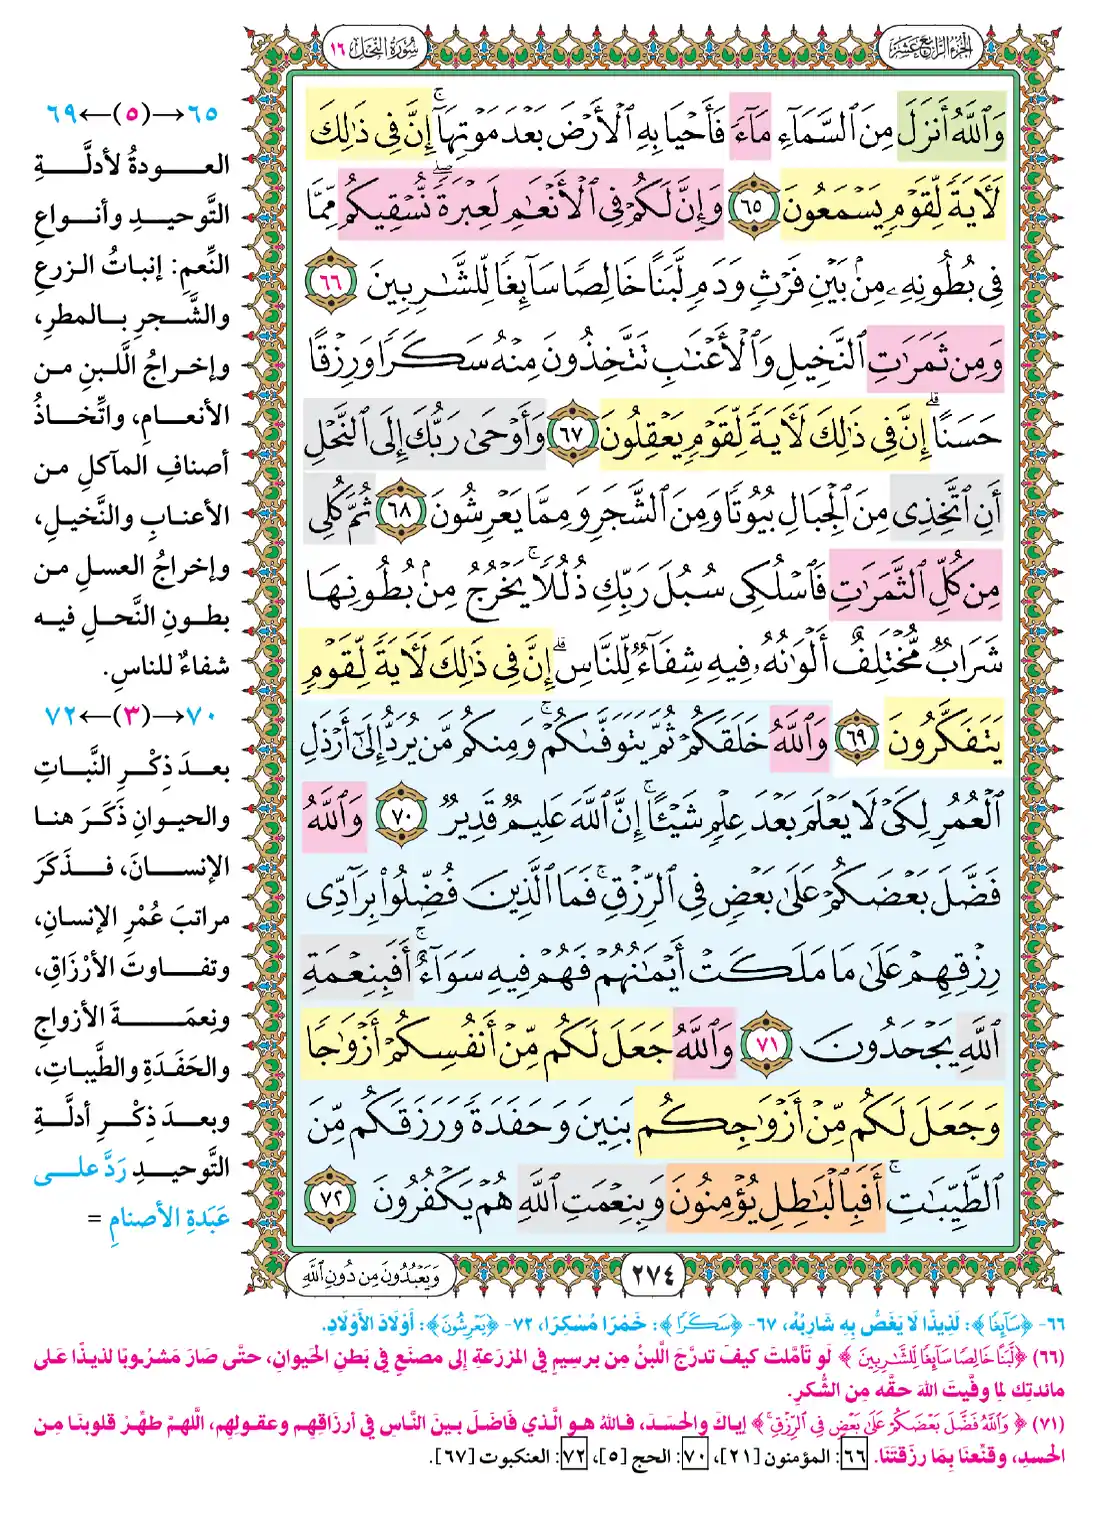 الجزء الرابع عشر
سورة النحل ١٦
وَٱللَّهُ أَنزَلَ مِنَ ٱلسَّمَآءِ مَآءً فَأَحْيَا بِهِ ٱلْأَرْضَ بَعْدَ مَوْتِهَآ ۚ إِنَّ فِى ذَٰلِكَ
لَـَٔايَةً لِّقَوْمٍ يَسْمَعُونَ ٦٥ وَإِنَّ لَكُمْ فِى ٱلْأَنْعَـٰمِ لَعِبْرَةً ۖ نُّسْقِيكُم مِّمَّا
فِى بُطُونِهِۦ مِنۢ بَيْنِ فَرْثٍ وَدَمٍ لَّبَنًا خَالِصًا سَآئِغًا لِّلشَّـٰرِبِينَ ٦٦
وَمِن ثَمَرَٰتِ ٱلنَّخِيلِ وَٱلْأَعْنَـٰبِ تَتَّخِذُونَ مِنْهُ سَكَرًا وَرِزْقًا
حَسَنًا ۗ إِنَّ فِى ذَٰلِكَ لَـَٔايَةً لِّقَوْمٍ يَعْقِلُونَ ٦٧ وَأَوْحَىٰ رَبُّكَ إِلَى ٱلنَّحْلِ
أَنِ ٱتَّخِذِى مِنَ ٱلْجِبَالِ بُيُوتًا وَمِنَ ٱلشَّجَرِ وَمِمَّا يَعْرِشُونَ ٦٨ ثُمَّ كُلِى
مِن كُلِّ ٱلثَّمَرَٰتِ فَٱسْلُكِى سُبُلَ رَبِّكِ ذُلُلًا ۚ يَخْرُجُ مِنۢ بُطُونِهَا
شَرَابٌ مُّخْتَلِفٌ أَلْوَٰنُهُۥ فِيهِ شِفَآءٌ لِّلنَّاسِ ۗ إِنَّ فِى ذَٰلِكَ لَـَٔايَةً لِّقَوْمٍ
يَتَفَكَّرُونَ ٦٩ وَٱللَّهُ خَلَقَكُمْ ثُمَّ يَتَوَفَّىٰكُمْ ۚ وَمِنكُم مَّن يُرَدُّ إِلَىٰٓ أَرْذَلِ
ٱلْعُمُرِ لِكَىْ لَا يَعْلَمَ بَعْدَ عِلْمٍ شَيْـًٔا ۚ إِنَّ ٱللَّهَ عَلِيمٌ قَدِيرٌ ٧٠ وَٱللَّهُ
فَضَّلَ بَعْضَكُمْ عَلَىٰ بَعْضٍ فِى ٱلرِّزْقِ ۚ فَمَا ٱلَّذِينَ فُضِّلُوا۟ بِرَآدِّى
رِزْقِهِمْ عَلَىٰ مَا مَلَكَتْ أَيْمَـٰنُهُمْ فَهُمْ فِيهِ سَوَآءٌ ۚ أَفَبِنِعْمَةِ
ٱللَّهِ يَجْحَدُونَ ٧١ وَٱللَّهُ جَعَلَ لَكُم مِّنْ أَنفُسِكُمْ أَزْوَٰجًا
وَجَعَلَ لَكُم مِّنْ أَزْوَٰجِكُم بَنِينَ وَحَفَدَةً وَرَزَقَكُم مِّنَ
ٱلطَّيِّبَـٰتِ ۚ أَفَبِٱلْبَـٰطِلِ يُؤْمِنُونَ وَبِنِعْمَتِ ٱللَّهِ هُمْ يَكْفُرُونَ ٧٢
٢٧٤
وَيَعْبُدُونَ مِن دُونِ ٱللَّهِ
٦٥→(٥)←٦٩
العودةُ لأدلَّةِ
التَّوحيدِ وأنواعِ
النِّعمِ: إنباتُ الزرعِ
والشَّجرِ بالمطرِ،
وإخراجُ اللَّبنِ من
الأنعامِ، واتِّخاذُ
أصنافِ المآكلِ من
الأعنابِ والنَّخيلِ،
وإخراجُ العسلِ من
بطونِ النَّحلِ فيه
شفاءٌ للناسِ.
٧٠→(٣)←٧٢
بعدَ ذِكْرِ النَّباتِ
والحيوانِ ذَكَرَ هنا
الإنسانَ، فذَكَرَ
مراتبَ عُمْرِ الإنسانِ،
وتفاوتَ الأرْزَاقِ،
ونِعمَةَ الأزواجِ
والحَفَدَةِ والطَّيباتِ،
وبعدَ ذِكْرِ أدلَّةِ
التَّوحيدِ رَدَّ على
عَبَدةِ الأصنامِ =
٦٦- ﴿سَآئِغًا﴾: لَذِيذًا لَا يَغَصُّ بِهِ شَارِبُهُ، ٦٧- ﴿سَكَرًا﴾: خَمْرًا مُسْكِرًا، ٧٢- ﴿يَعْرِشُونَ﴾: أَوْلَادَ الأَوْلَادِ.
(٦٦) ﴿لَّبَنًا خَالِصًا سَآئِغًا لِّلشَّـٰرِبِينَ﴾ لَو تَأمَّلتَ كيفَ تدرَّجَ اللَّبنُ مِن برسيمٍ في المزرَعةِ إلى مصنَعٍ في بَطنِ الحَيوانِ، حتَّى صَارَ مَشرُوبًا لذيذًا عَلى
مائدتِك لما وفَّيتَ اللهَ حقَّه مِن الشُّكرِ.
(٧١) ﴿وَٱللَّهُ فَضَّلَ بَعْضَكُمْ عَلَىٰ بَعْضٍ فِى ٱلرِّزْقِ ۚ﴾ إياكَ والحَسَدَ، فاللهُ هو الَّذي فَاضَلَ بينَ النَّاسِ في أرزَاقِهِم وعقولِهِم، اللَّهمَّ طهِّرْ قلوبنَا مِن
الحسدِ، وقنِّعنَا بِمَا رزَقتَنَا. ٦٦: المؤمنون [٢١]، ٧٠: الحج [٥]، ٧٢: العنكبوت [٦٧].